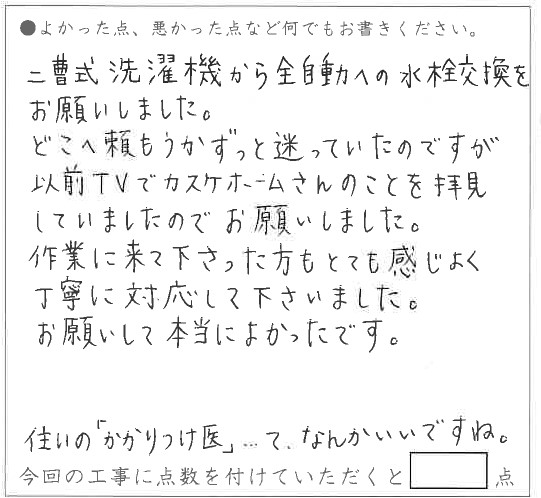 ●よかった点、悪かった点など何でもお書きください。
二曹式洗濯機から全自動への水栓交換を
お願いしました。
どこへ頼もうかずっと迷っていたのですが
以前TVでカスケホームさんのことを拝見
していましたのでお願いしました。
作業に来て下さった方もとても感じよく
丁寧に対応して下さいました。
お願いして本当によかったです。
住いの「かかりつけ医」…て、なんかいいですね。
今回の工事に点数を付けていただくと 点